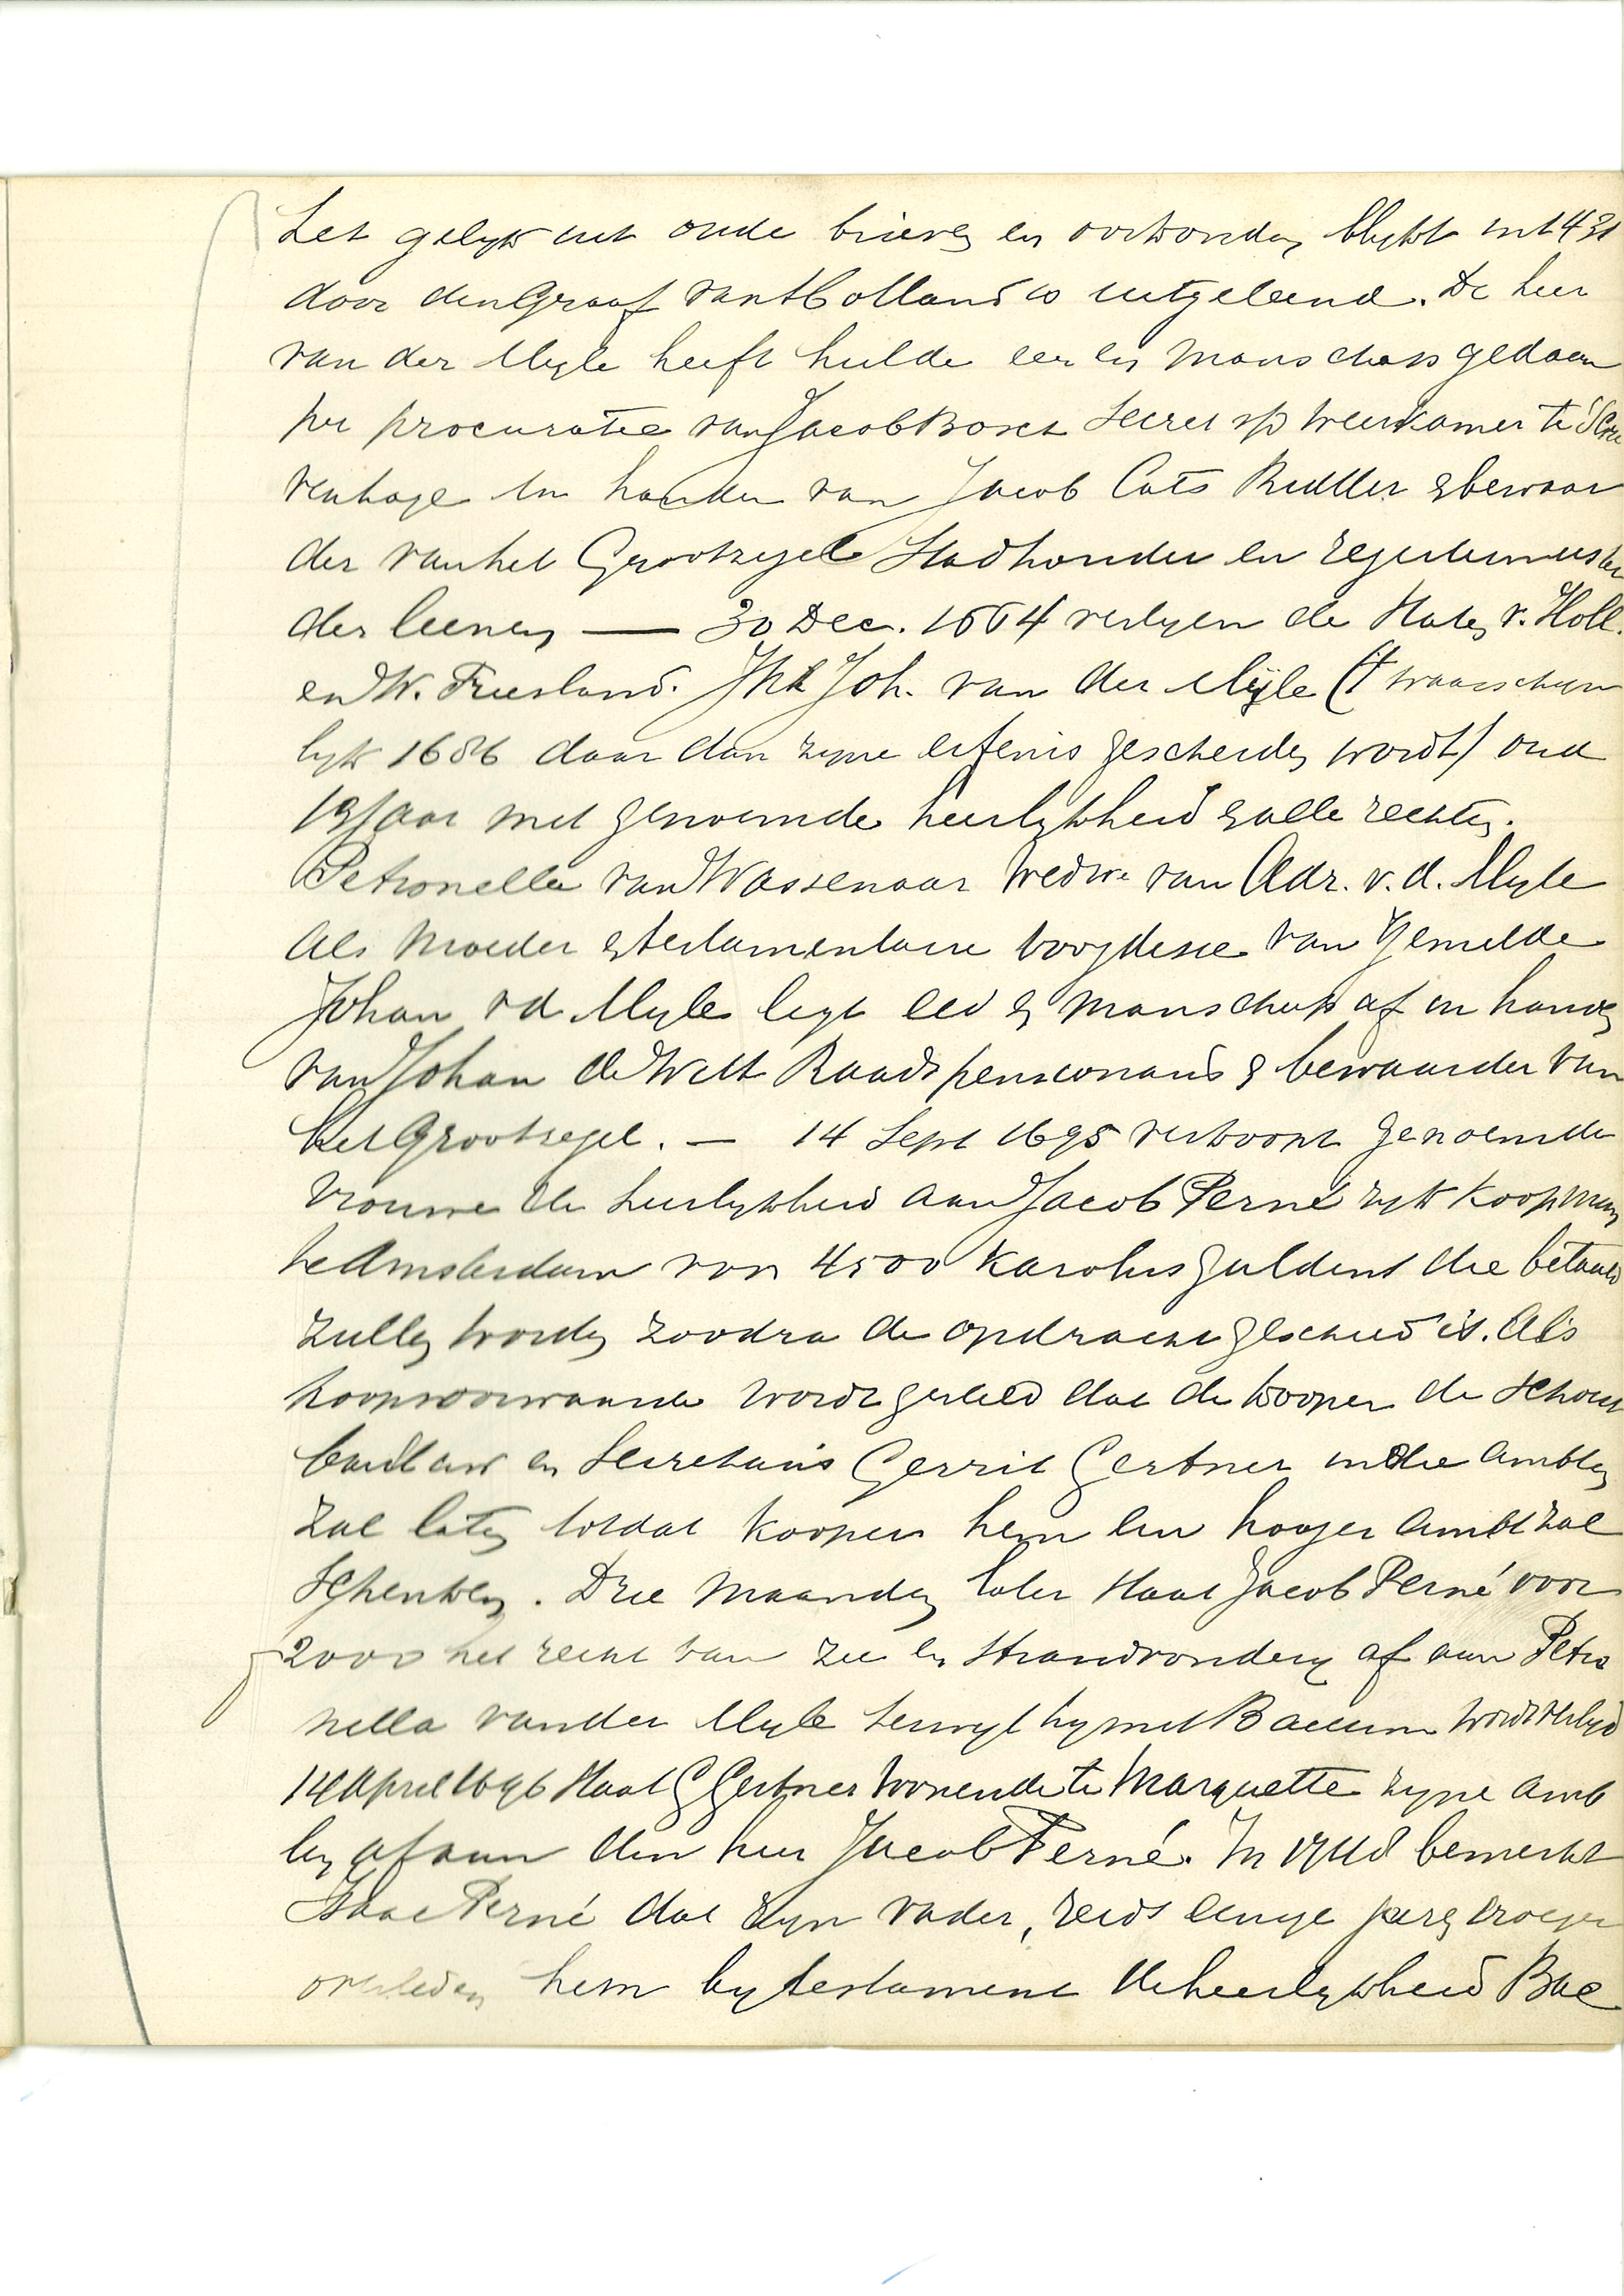 Let gelyk uit oude brieven en oorkonden blykt in 1431
door den Graaf van Holland co uitgeleend. De heer
van der Myle heeft hulde eer en manschap gedaan
per procuratie van Jacob Bosch Secret op Weeskamer te 's Gra
venhage in handen van Jacob Cats Ridder & bewaar
der van het Grootzegel Stadhouder en registermeester
der leenen — 30 Dec. 1664 verlyen de Staten v. Holl.
en W. Friesland. Jhr Joh. van der Mijle († waarschyn
lyk 1686 daar dan zyne erfenis gescheiden wordt) oud
19 jaar met genoemde heerlykheid & alle rechten.
Petronella van Wassenaar Wedwe van Adr. v. d. Myle
als moeder & testamentaire voogdesse van gemelde
Johan v d Myle legt eed en manschap af in handen
van Johan de Witt Raadspensionaris & bewaarder van
het Grootzegel. — 14 Sept 1695 verkoopt genoemde
Vrouwe de heerlykheid aan Jacob Perné ryk koopman
te Amsterdam voor 4500 Karolus guldens die betaald
zullen worden zoodra de opdracht geschied is. Als
koopvoorwaarde wordt gesteld dat de kooper de Schout
bailluw en Secretaris Gerrit Gertner in die ambten
zal laten totdat kooper hem een hooger ambt zal
schenken. Drie maanden later staat Jacob Perné voor
2000 het recht van zee en strandvonderij af aan Petro
nella van der Myle terwyl hy met Bacum wordt verlyd
14 April 1696 staat G Gertner wonende te Marquette zyne amb
ten af aan den heer Jacob Perné. In bemerkt
Isaac Perné dat zyn vader, reeds eenige jaren vroeger
overleden hem by testament de heerlykheid Bac